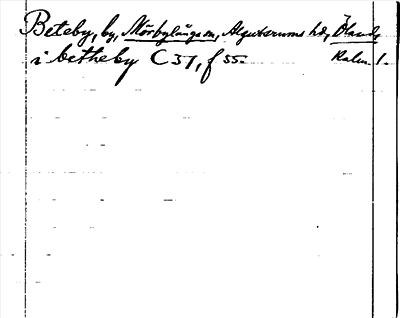 Beteby, by, Mörbylångs sn, Algutsrums hd, Öland,
i betheby C 37, f 55. Kalm. l.